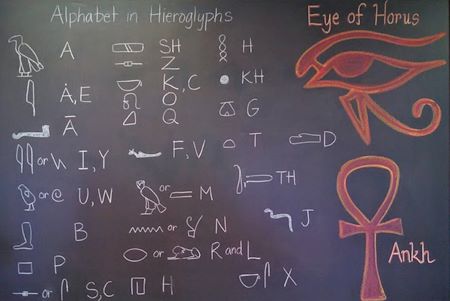 Alphabet in Hieroglyphs
A
Ȧ, E
Ā
or I, Y
or U, W
B
P
or S, C
SH
Z
K, C
O
Q
F, V
or M
or N
or R and L
H
H
KH
G
T
D
TH
J
X
Eye of Horus
Ankh